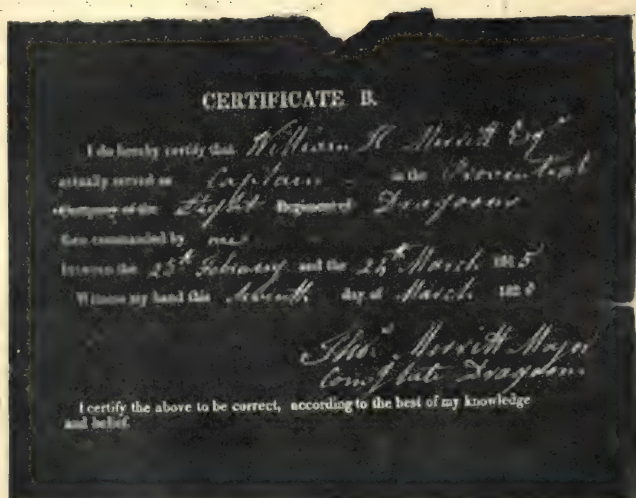 CERTIFICATE B.
I do hereby certify that William H Merritt Esqr
actually served as Captain in the Provincial
Light Regiment of Dragoons
then commanded by me
between the 25th February and the 24th March 1815
Witness my hand this Seventh day of March 182
Thos. Merritt Major
Comg late Dragoons
I certify the above to be correct, according to the best of my knowledge
and belief.